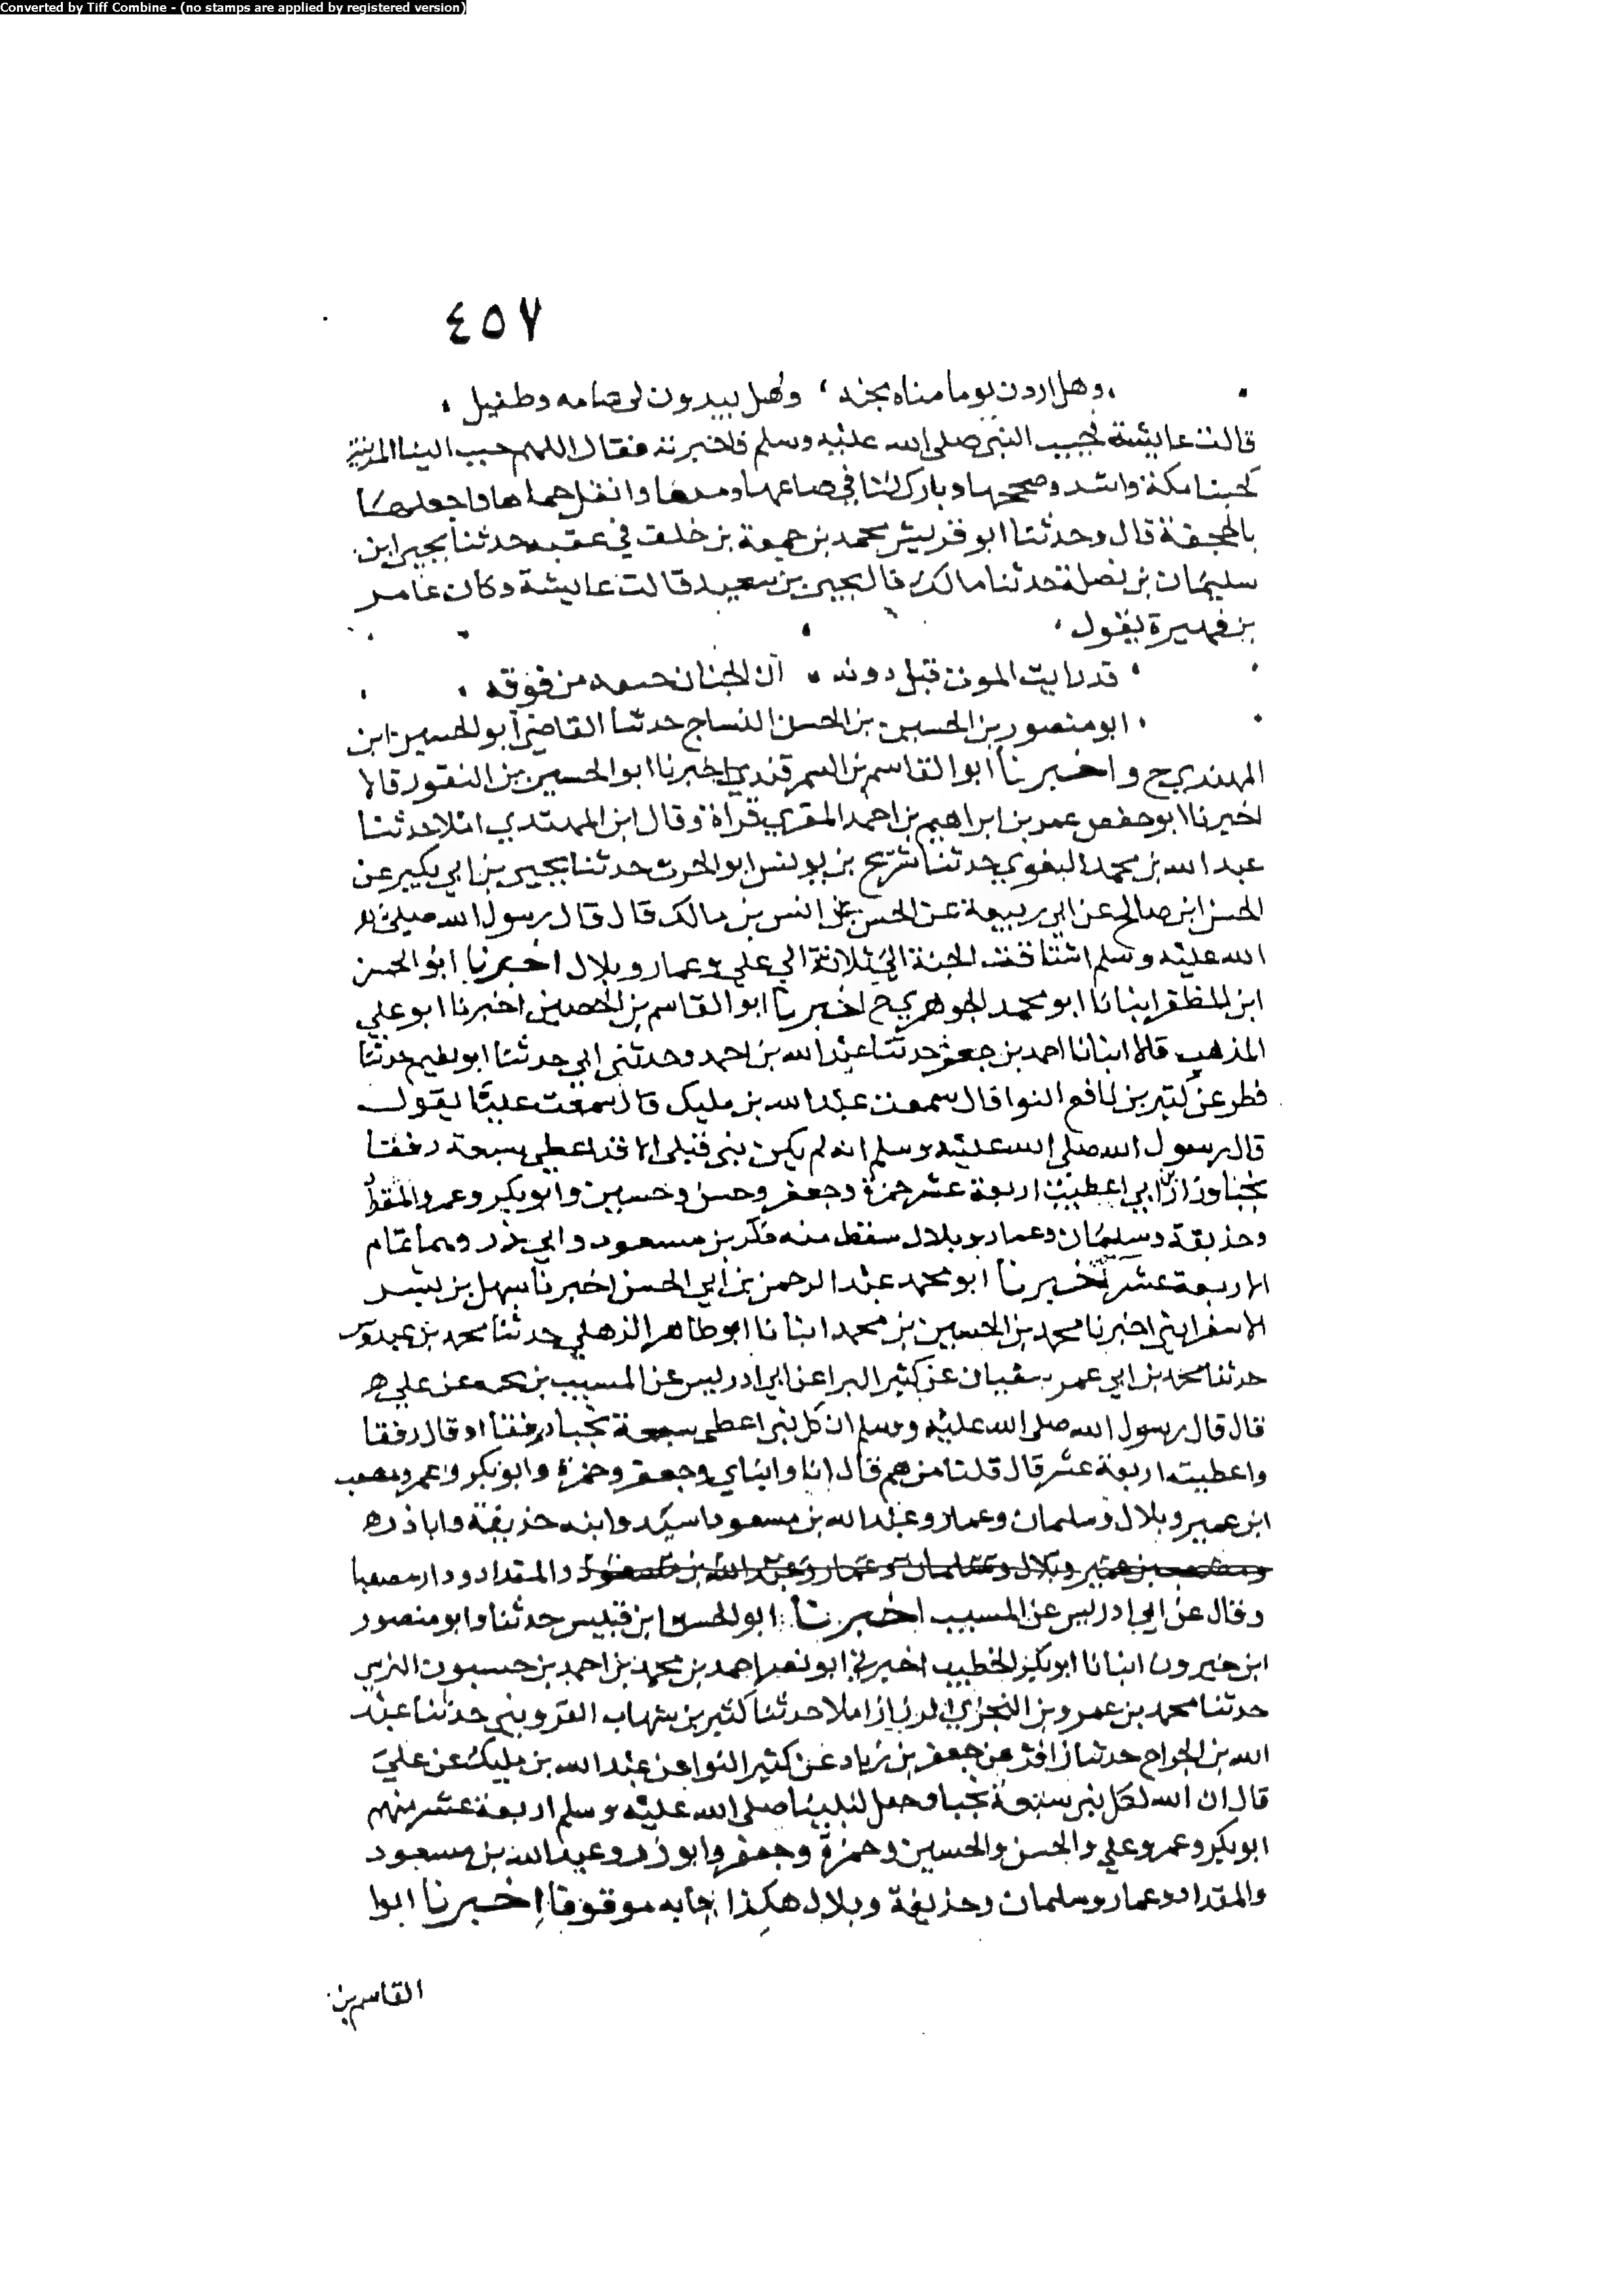 Converted by Tiff Combine - (no stamps are applied by registered version)
٤٥٧
وهل اردن يوما مياه مجنه وهل يبدون لي شامه وطفيل
قالت عايشة فجيت النبي صلى الله عليه وسلم فاخبرته فقال اللهم حبب الينا المدينة
كحبنا مكة واشد وصححها وبارك لنا في صاعها ومدها وانقل حماها فاجعلها
بالجحفة قال وحدثنا ابو قريش محمد بن جمعة بن خلف في عقبه حدثنا يحيى ابن
سليمان بن نضلة حدثنا مالك قال يحيى بن سعيد قالت عايشة وكان عامر
بن فهيرة يقول
قد رايت الموت قبل دونه ان الجبان حتفه من فوقه
ابو منصور بن الحسين بن الحسن النساج حدثنا القاضي ابو الحسين ابن
المهتدي ح واخبرنا ابو القاسم بن السمرقندي اخبرنا ابو الحسين بن النقور قالا
اخبرنا ابو حفص عمر بن ابراهيم بن احمد المقري قراة وقال ابن المهتدي املا حدثنا
عبد الله بن محمد البغوي حدثنا شريح بن يونس ابو الحرث حدثنا يحيى بن ابي بكير عن
الحسن ابن صالح عن ابي ربيعة عن الحسن عن انس بن مالك قال قال رسول الله صلى
الله عليه وسلم اشتاقت الجنة الى ثلاثة الي علي وعمار وبلال اخبرنا ابو الحسن
ابن المظفر انبانا ابو محمد الجوهري ح اخبرنا ابو القاسم بن الحصين اخبرنا ابو علي
المذهب قالا انبانا احمد بن جعفر حدثنا عبد الله بن احمد وحدثني ابي حدثنا ابو نعيم حدثنا
فطر عن كثير بن نافع النوا قال سمعت عبد الله بن مليك قال سمعت عليا يقول
قال رسول الله صلى الله عليه وسلم انه لم يكن نبي قبلي الا قد اعطي سبعة رفقا
نجبا وزرا اني اعطيت اربعة عشر حمزة وجعفر وحسن وحسين وابو بكر وعمر والمقداد
وحذيفة وسليمان وعمار وبلال سقط منه ذكر بن مسعود وابي ذر وهما تمام
الاربعة عشر اخبرنا ابو محمد عبد الرحمن بن ابي الحسن اخبرنا سهل بن بشر
الاسفرايني اخبرنا محمد بن الحسين بن محمد انبانا ابو طاهر الذهلي حدثنا محمد بن عبدوس
حدثنا محمد بن ابي عمر سفيان عن كثير البرا عن ابي ادريس عن المسيب بن نجبه عن علي ه
قال قال رسول الله صلى الله عليه وسلم ان كل نبي اعطي سبعة نجبا رفقا او قال رفقا
واعطيت اربعة عشر قال قلنا من هم قال انا وابناي وجعفر وحمزة وابو بكر وعمر ومصعب
ابن عمير وبلال وسلمان وعمار وعبد الله بن مسعود وابنه حذيفة واباذر ه
ومصعب بن عمير وبلال وسلمان وعمار وعبد الله بن مسعود والمقداد وزاد مصعبا
وقال عن ابي ادريس عن المسيب اخبرنا ابو الحسن ابن قبيس حدثنا وابو منصور
ابن خيرون انبانا ابو بكر الخطيب اخبرني ابو نصر احمد بن محمد بن احمد بن حسنون النرسي
حدثنا محمد بن عمرو بن البختري الرزاز املا حدثنا كثير بن شهاب القزويني حدثنا عبد
الله بن الجراح حدثنا زافر عن جعفر بن زياد عن كثير النوا عن عبد الله بن مليك عن علي
قال ان الله لكل نبي سبعة نجبا وجعل لنبينا صلى الله عليه وسلم اربعة عشر منهم
ابو بكر وعمر وعلي والحسن والحسين وحمزة وجعفر وابو ذر وعبد الله بن مسعود
والمقداد وعمار وسلمان وحذيفة وبلال هكذا جابه موقوفا اخبرنا ابوا
القاسم بن